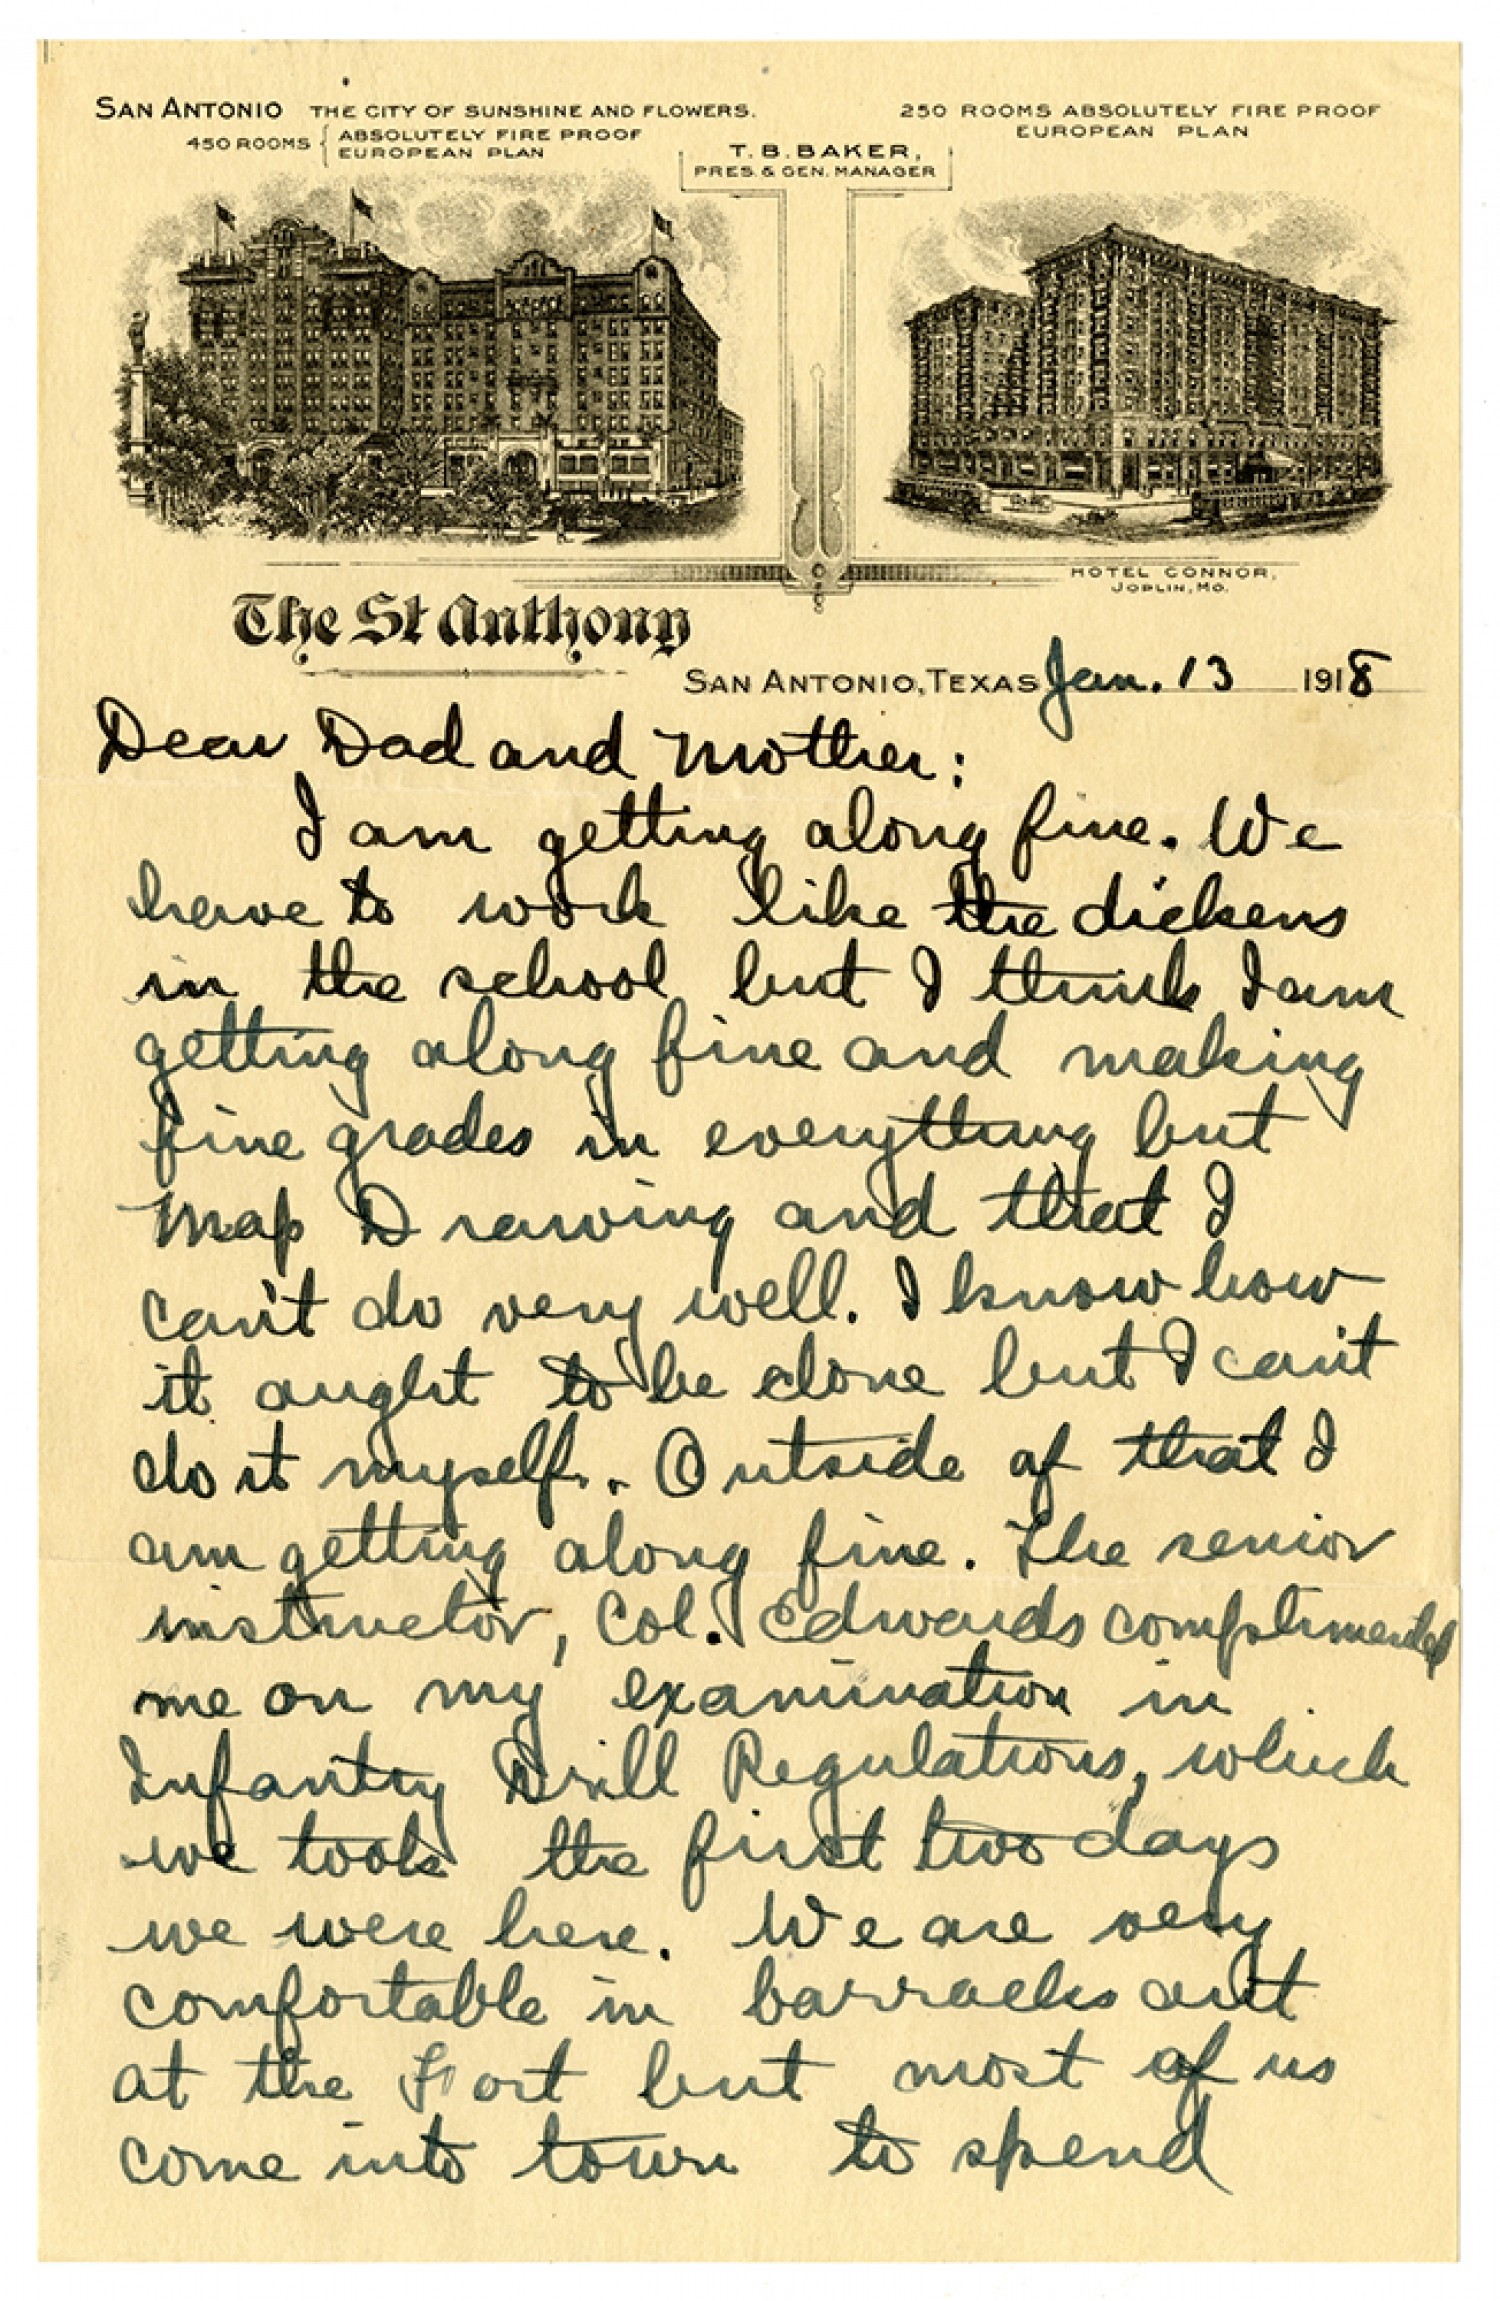 SAN ANTONIO THE CITY OF SUNSHINE AND FLOWERS.
450 ROOMS { ABSOLUTELY FIRE PROOF
EUROPEAN PLAN
T. B. BAKER,
PRES. & GEN. MANAGER
250 ROOMS ABSOLUTELY FIRE PROOF
EUROPEAN PLAN
HOTEL CONNOR,
JOPLIN, MO.
The St Anthony
SAN ANTONIO, TEXAS Jan. 13 1918
Dear Dad and Mother:
I am getting along fine. We
have to work like the dickens
in the school but I think I am
getting along fine and making
fine grades in everything but
Map Drawing and that I
can't do very well. I know how
it ought to be done but I can't
do it myself. Outside of that I
am getting along fine. The senior
instructor, Col. Edwards complimented
me on my examination in
Infantry Drill Regulations, which
we took the first two days
we were here. We are very
comfortable in barracks out
at the Fort but most of us
come into town to spend